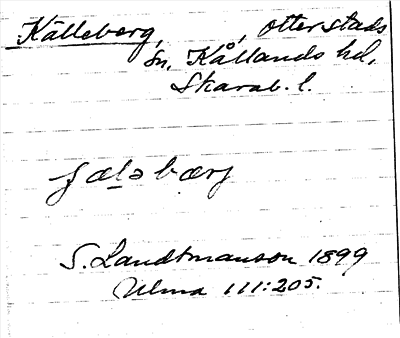 Källeberg, , Otterstads
sn, Kållands hd,
Skarab. l.
S. Landtmanson 1899
Ulma 111:205.